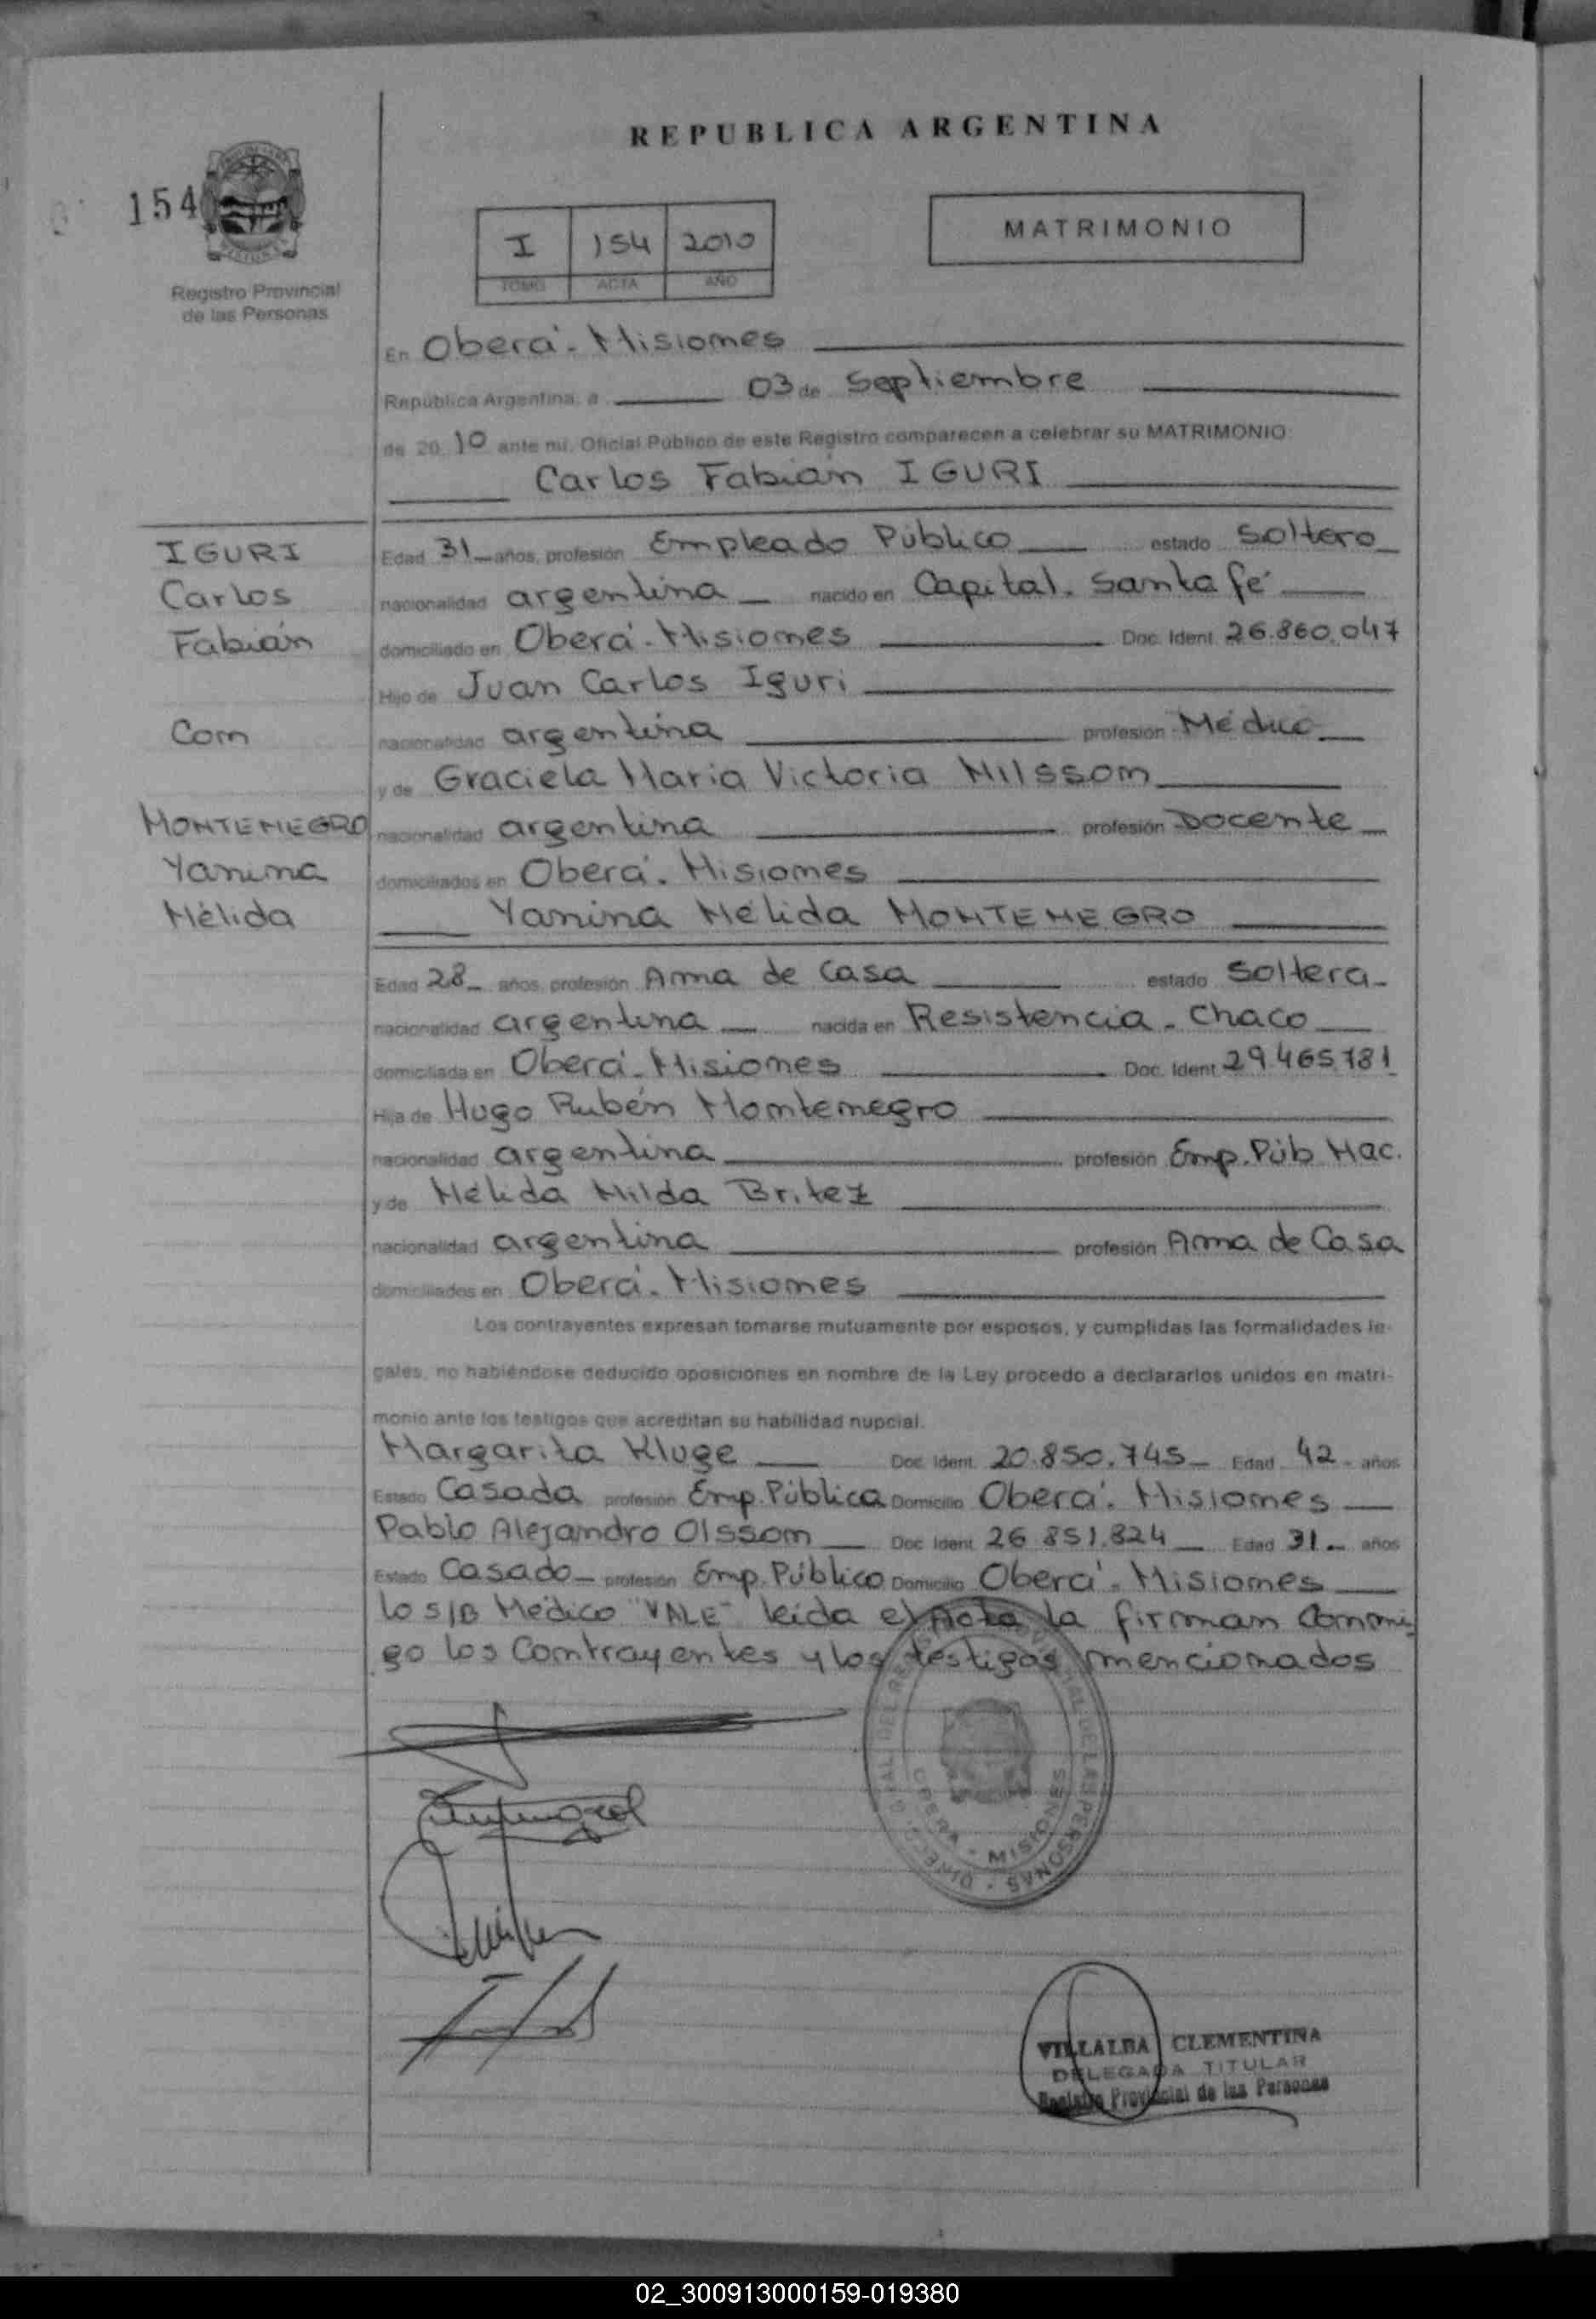 REPUBLICA ARGENTINA
154
Registro Provincial
de las Personas
I 154 2010
TOMO ACTA AÑO
MATRIMONIO
En Oberá - Misiones
República Argentina, a 03 de Septiembre
de 20 10 ante mi, Oficial Público de este Registro comparecen a celebrar su MATRIMONIO
Carlos Fabián IGURI
IGURI
Carlos
Fabián
Con
MONTENEGRO
Yanina
Nélida
Edad 31 años, profesión Empleado Público estado Soltero
nacionalidad argentina nacido en Capital. Santa fé
domiciliado en Oberá - Misiones Doc. Ident. 26.860.047
Hijo de Juan Carlos Iguri
nacionalidad argentina profesión Médico
y de Graciela Maria Victoria Nilsson
nacionalidad argentina profesión Docente
domiciliados en Oberá. Misiones
Yanina Nélida MONTENEGRO
Edad 28 años, profesión Ama de Casa estado Soltera
nacionalidad argentina nacida en Resistencia - Chaco
domiciliada en Oberá - Misiones Doc. Ident. 29.465.781
Hija de Hugo Rubén Montenegro
nacionalidad argentina profesión Emp. Púb Nac.
y de Nélida Nilda Britez
nacionalidad argentina profesión Ama de Casa
domiciliados en Oberá. Misiones
Los contrayentes expresan tomarse mutuamente por esposos, y cumplidas las formalidades le-
gales, no habiéndose deducido oposiciones en nombre de la Ley procedo a declararlos unidos en matri-
monio ante los testigos que acreditan su habilidad nupcial.
Margarita Kluge Doc. Ident. 20.850.745 Edad 42 años
Estado Casada profesión Emp. Pública Domicilio Oberá. Misiones
Pablo Alejandro Olsson Doc. Ident. 26.851.824 Edad 31 años
Estado Casado profesión Emp. Público Domicilio Oberá. Misiones
lo s/B Médico "VALE" leida el Acta la firman conmi
go los Contrayentes y los testigos mencionados
OBERA - MISIONES
VILLALBA CLEMENTINA
DELEGADA TITULAR
Registro Provincial de las Personas
02_300913000159-019380